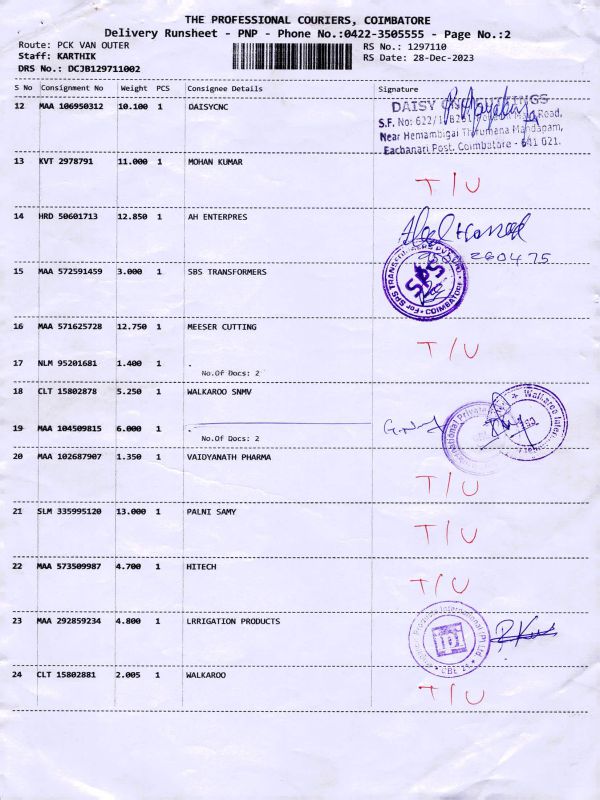 THE PROFESSIONAL COURIERS, COIMBATORE
Delivery Runsheet - PNP - Phone No.:0422-3505555 - Page No.:2
Route: PCK VAN OUTER
RS No.: 1297110
Staff: KARTHIK
RS Date: 28-Dec-2023
DRS No.: DCJB129711002
S No Consignment No Weight PCS Consignee Details Signature
12 MAA 106950312 10.100 1 DAISYCNC
DAISY
S.F. No: 622/1, Road,
Near Hemambigai Thirumena Mandapam,
Eachanari Post, Coimbatore - 641 021.
13 KVT 2978791 11.000 1 MOHAN KUMAR
T/U
14 HRD 50601713 12.850 1 AH ENTERPRES
15 MAA 572591459 3.000 1 SBS TRANSFORMERS
For SPS TRANSFORMERS COIMBATORE
SPS
16 MAA 571625728 12.750 1 MEESER CUTTING
T/U
17 NLM 95201681 1.400 1 .
No.Of Docs: 2
18 CLT 15802878 5.250 1 WALKAROO SNMV
Walkaroo
Private
19 MAA 104509815 6.000 1 .
No.Of Docs: 2
20 MAA 102687907 1.350 1 VAIDYANATH PHARMA
T/U
21 SLM 335995120 13.000 1 PALNI SAMY
T/U
22 MAA 573509987 4.700 1 HITECH
T/U
23 MAA 292859234 4.800 1 LRRIGATION PRODUCTS
International (P) Ltd.
24 CLT 15802881 2.005 1 WALKAROO
T/U